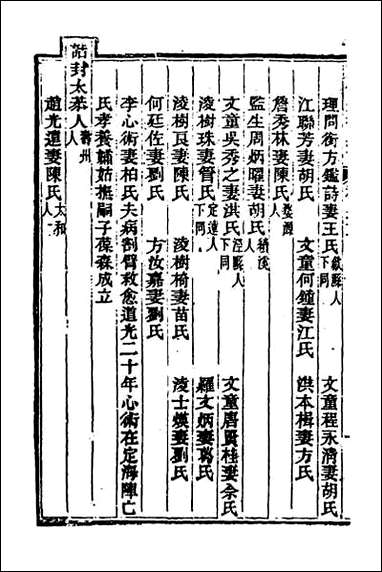 理問銜方鑑詩妻王氏歙縣人下同 文童程永濟妻胡氏
江聯芳妻胡氏 文童何鍾妻江氏 洪本楫妻方氏
詹秀林妻陳氏婺源人
監生周炳曜妻胡氏績溪人
文童吳秀之妻洪氏涇縣人下同 文童唐賢桂妻佘氏
淩樹珠妻管氏定遠人下同 羅文炳妻葛氏
淩樹艮妻陳氏 淩樹椅妻苗氏 淩士煐妻劉氏
何廷佐妻劉氏 方汝嘉妻劉氏
李心術妻柏氏夫病割臂救愈道光二十年心術在定海陣亡
氏孝養孀姑撫嗣子葆森成立
誥封太恭人壽州人
趙光遠妻陳氏太和人